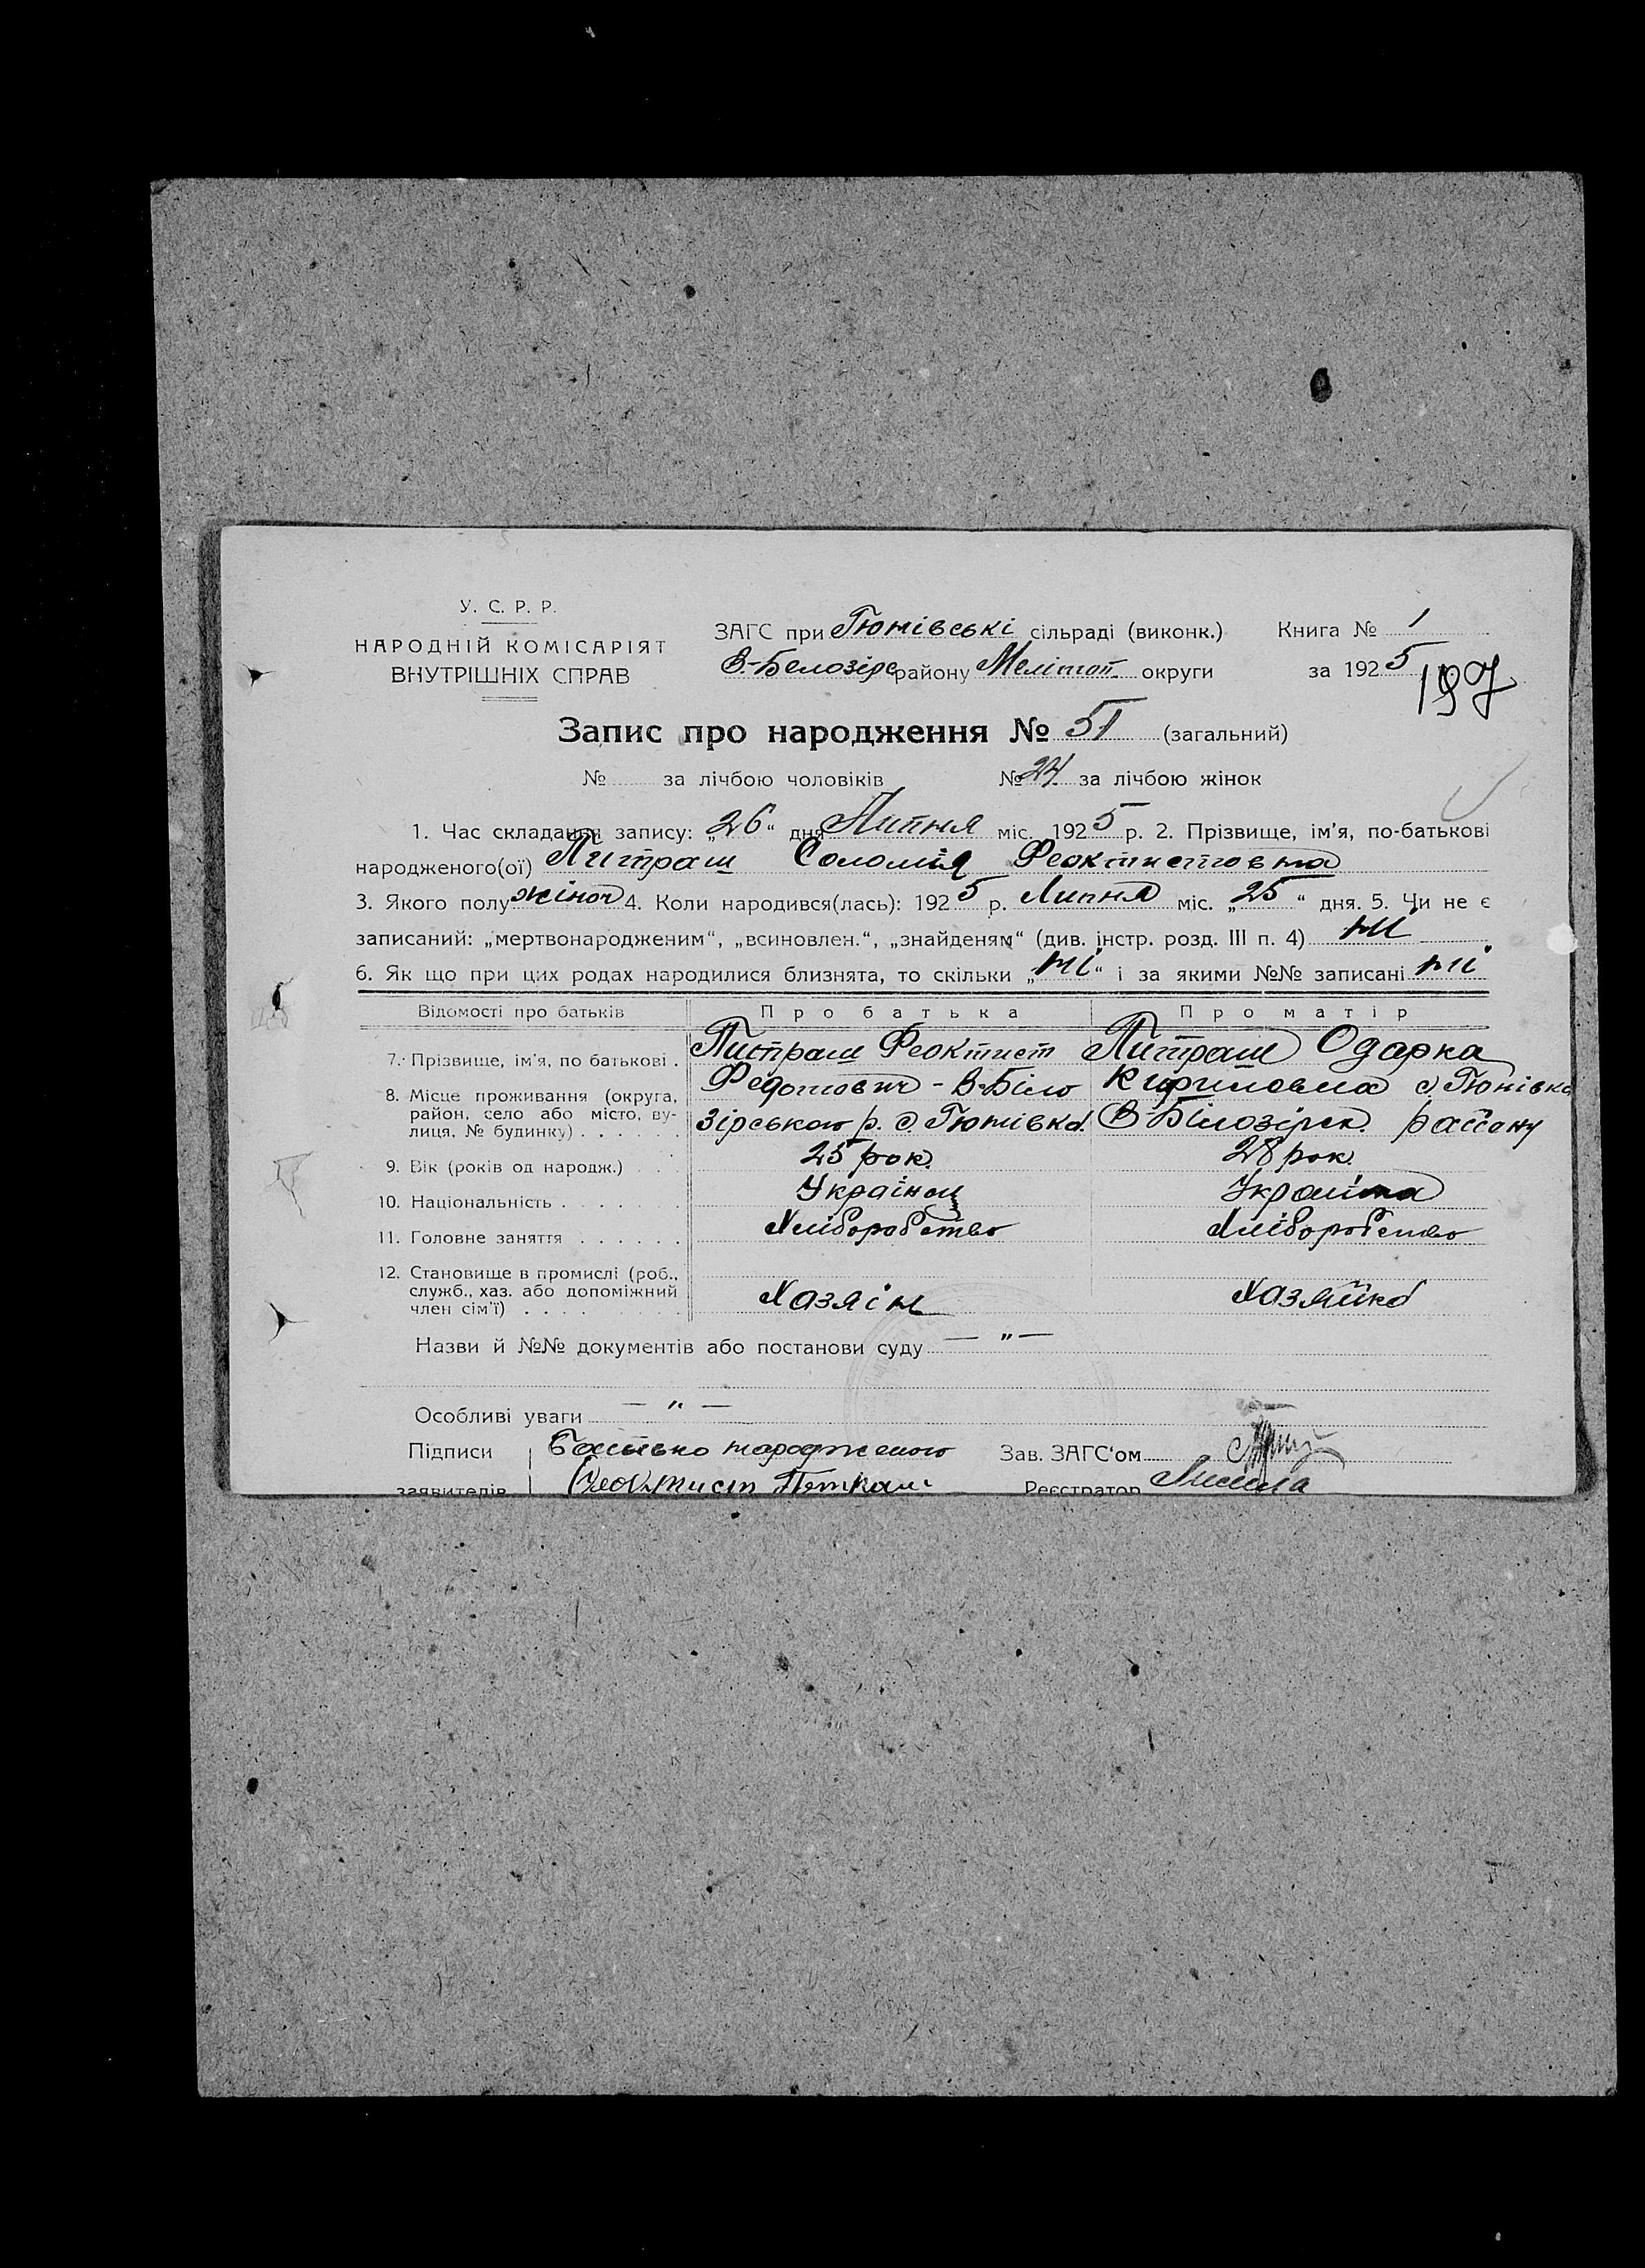 У. С. Р. Р.
НАРОДНІЙ КОМІСАРІЯТ
ВНУТРІШНІХ СПРАВ
ЗАГС при Гюнівські сільраді (виконк.) Книга № 1
В.-Белозірс району Меліттоп. округи за 1925
197
Запис про народження № 51 (загальний)
№ за лічбою чоловіків № 24 за лічбою жінок
1. Час складання запису: „26“ дня Липня міс. 1925 р. 2. Прізвище, ім'я, по-батькові
народженого(ої) Питраш Соломія Феоктистовна
3. Якого полу жіноч 4. Коли народився(лась): 1925 р. Липня міс. „25“ дня. 5. Чи не є
записаний: „мертвонародженим“, „всиновлен.“, „знайденям“ (див. інстр. розд. III п. 4) ні
6. Як що при цих родах народилися близнята, то скільки „ні“ і за якими №№ записані ні
Відомості про батьків Про батька Про матір
7. Прізвище, ім'я, по батькові . Питраш Феоктист Питраш Одарка
8. Місце проживання (округа, район, село або місто, вулиця, № будинку) . . . . . . Федотович - В-Біло Кириловна с. Гюнівка
зірського р. с. Гюнівка. В-Білозірск. району
9. Вік (років од народж.) . . 25 рок. 28 рок.
10. Національність . . . . . . . Українец Украінка
11. Головне заняття . . . . . . Хліборобство Хліборобство
12. Становище в промислі (роб., служб., хаз. або допоміжний член сім'ї) . . . . Хазяін Хазяйка
Назви й №№ документів або постанови суду — „ —
Особливі уваги — „ —
Підписи Батько народженого Зав. ЗАГС'ом
заявителів Феоктист Реєстратор